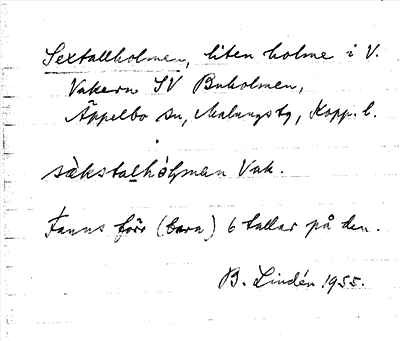 Sextallholmen, liten holme i V.
Vakern SV Buholmen,
Äppelbo sn, Malungs tg, Kopp. l.
sàkstalhólman Vak.
Fanns förr (bara) 6 tallar på den.
B. Lindén 1955.